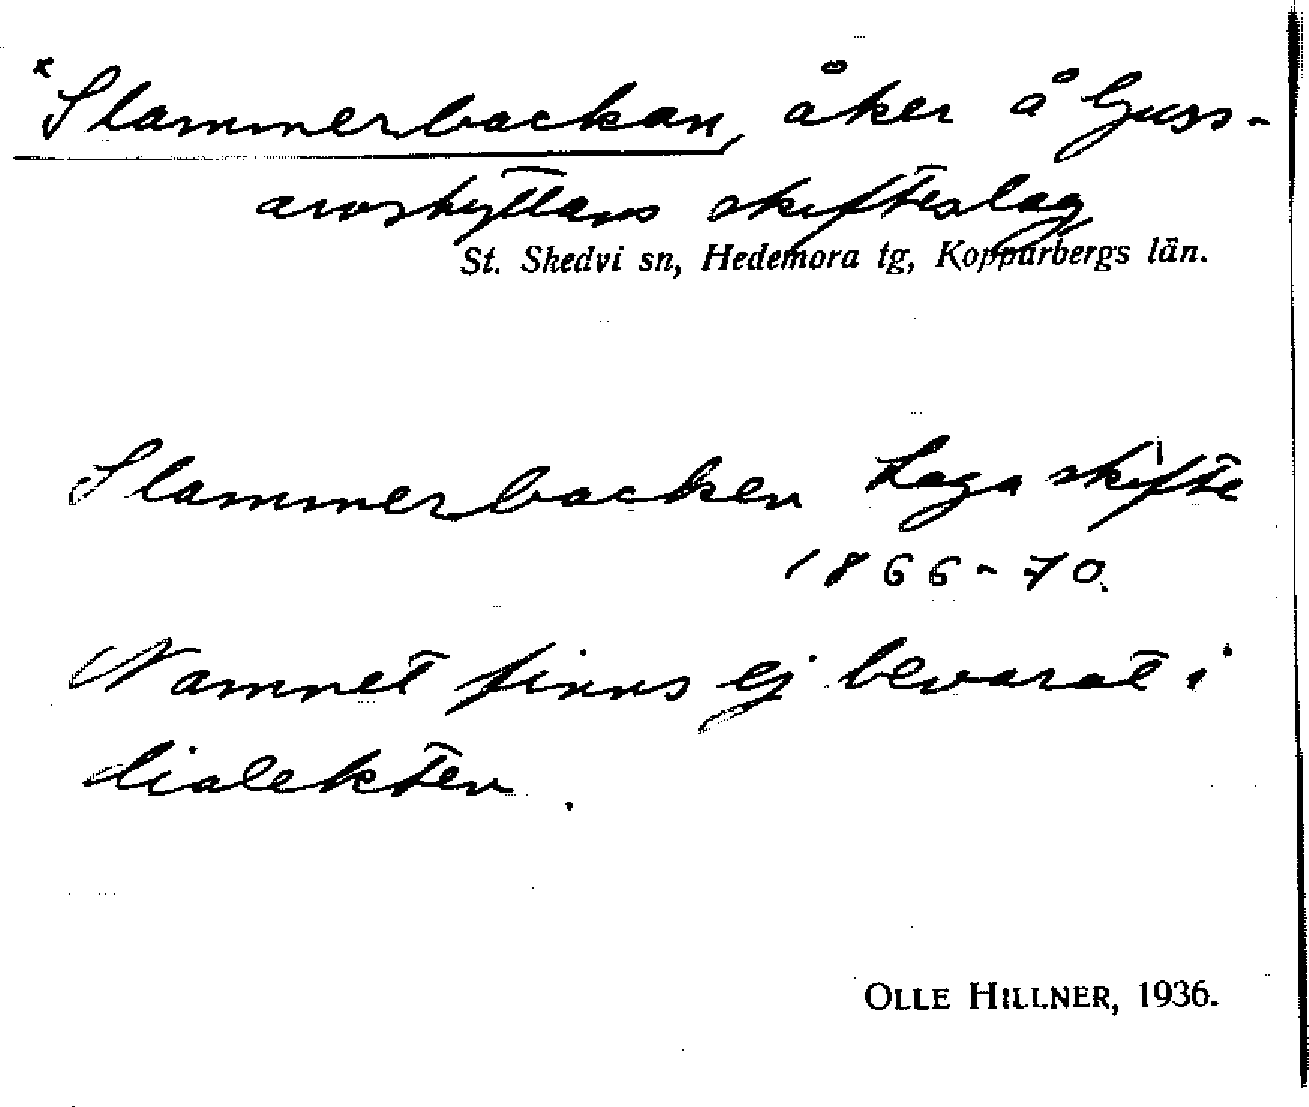 *Slammerbackan, åker å Guss-
arvshyttans skifteslag
St. Skedvi sn, Hedemora tg, Kopparbergs län.
Slammerbacken Laga skifte
1866-70.
Namnet finns ej bevarat i
dialekten.
OLLE HILLNER, 1936.